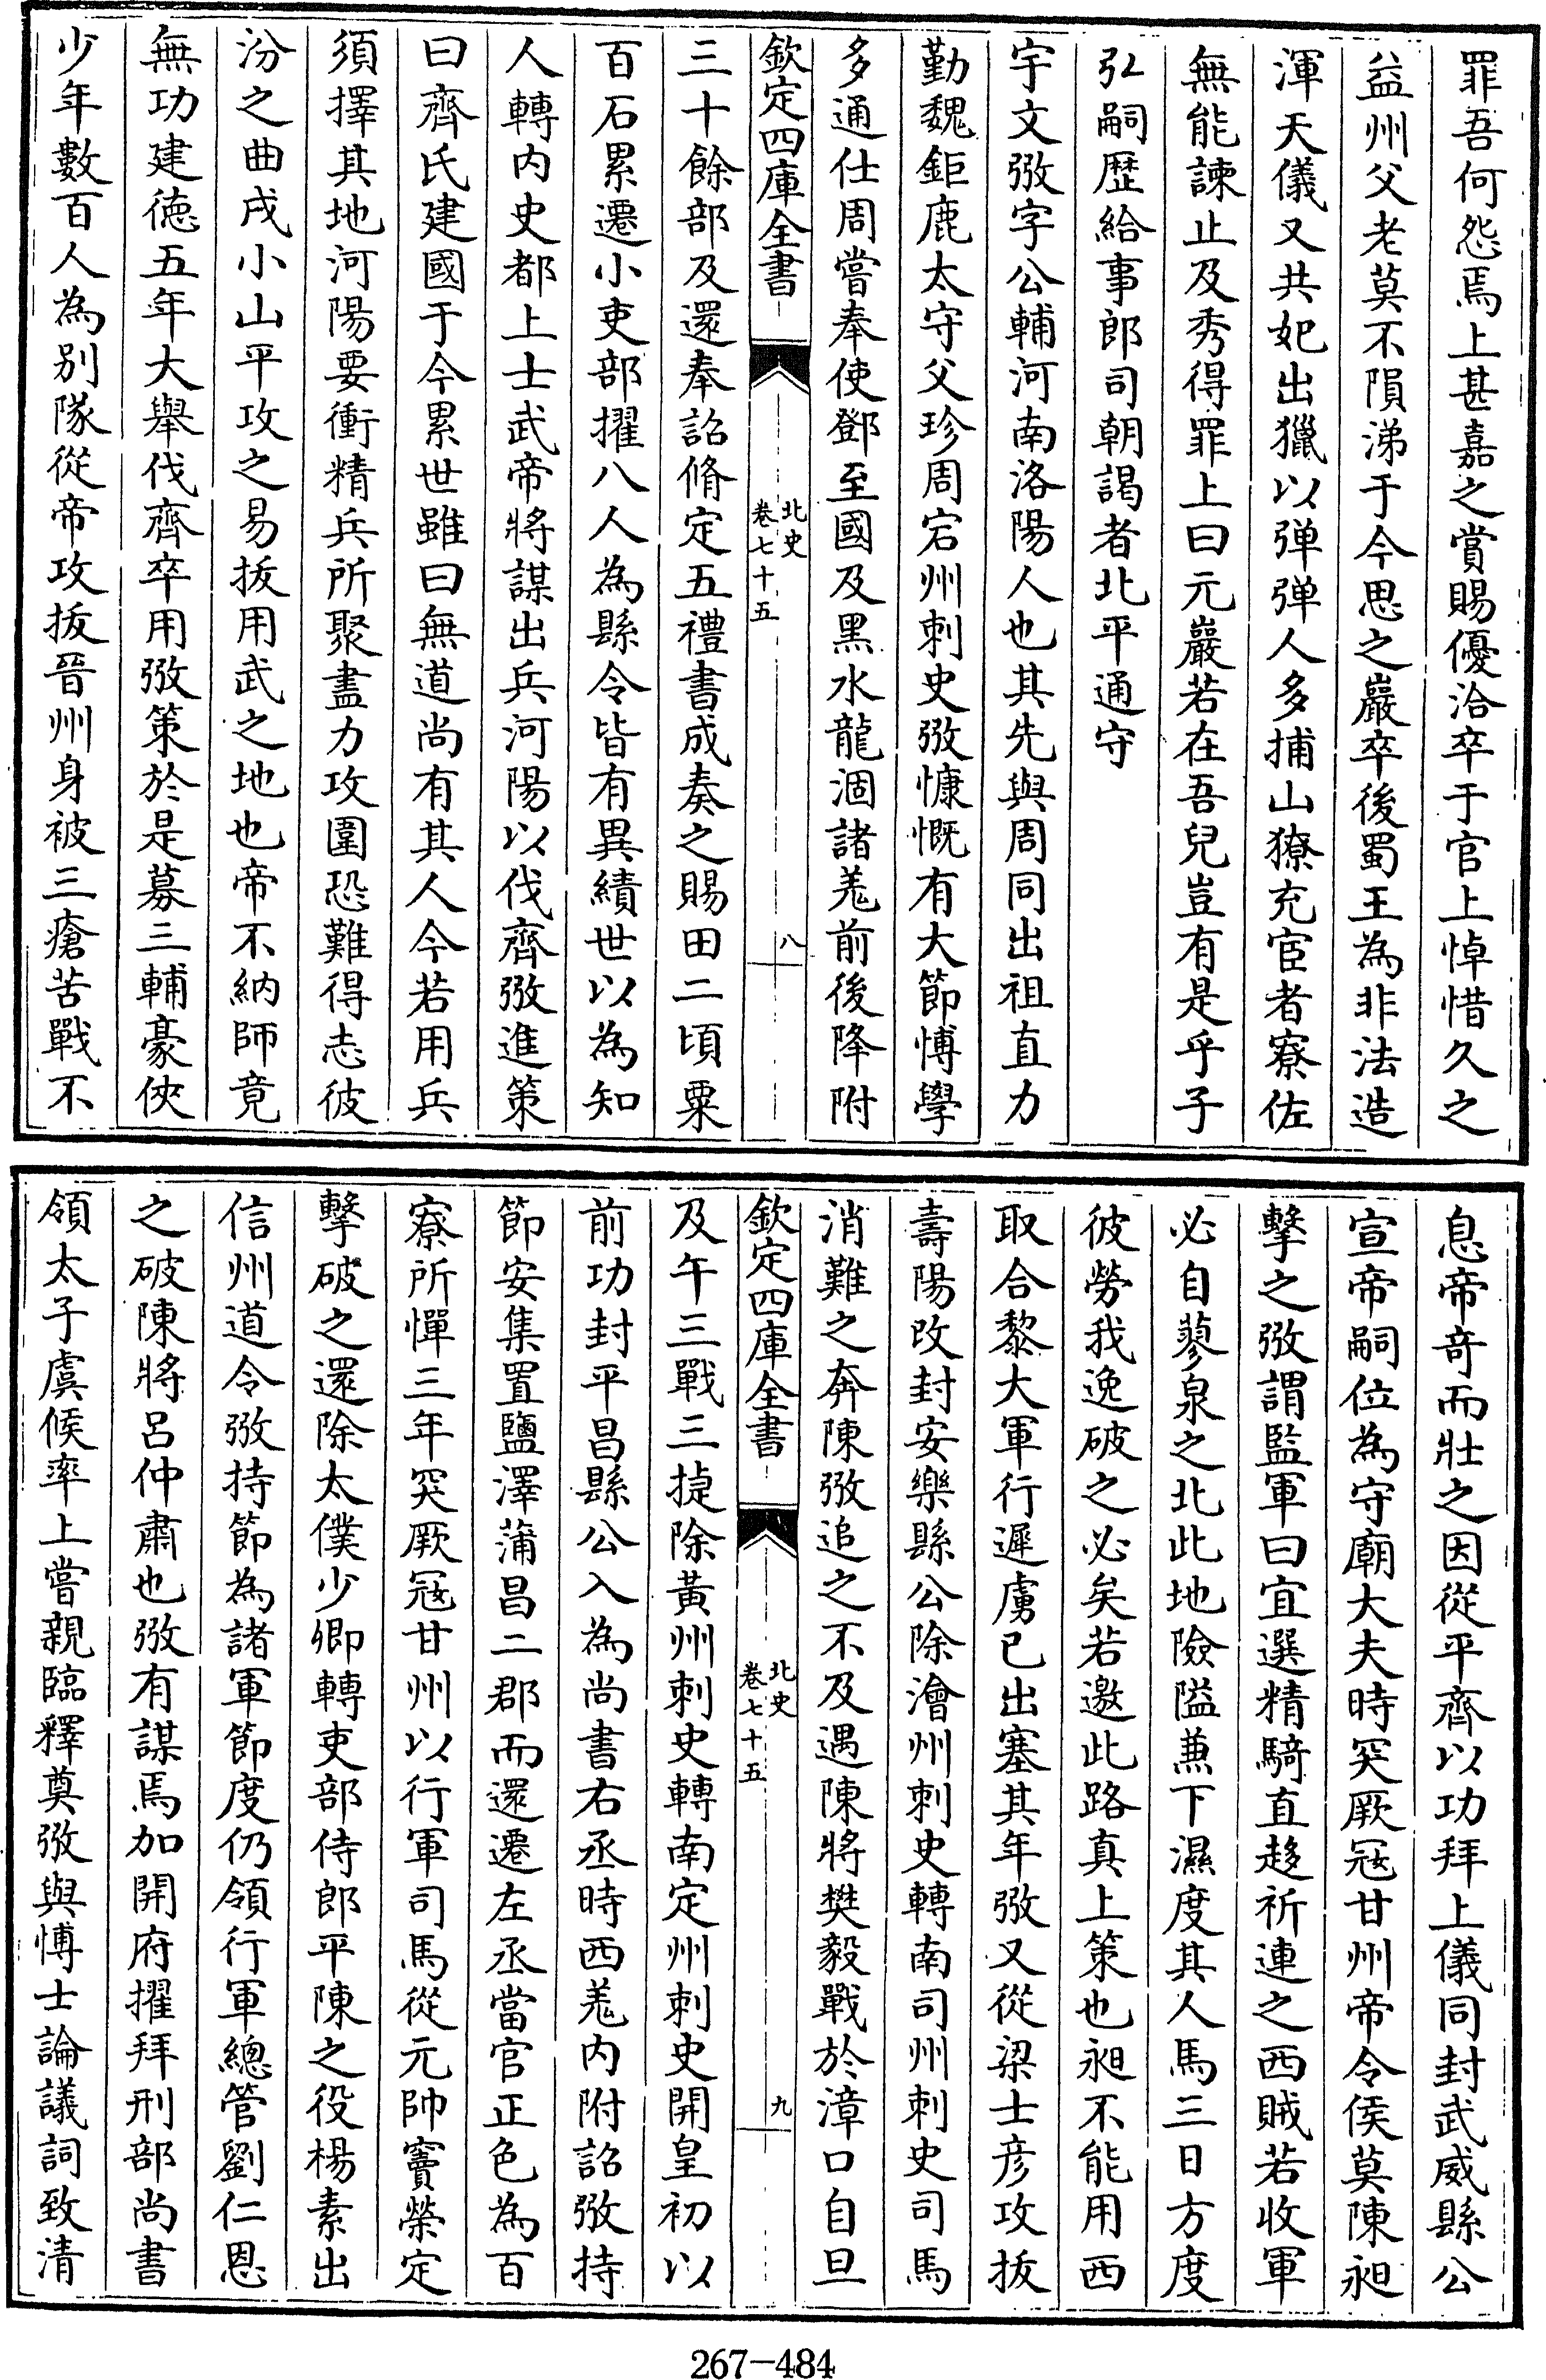 罪吾何怨焉上甚嘉之賞賜優洽卒于官上悼惜久之
益州父老莫不隕涕于今思之巖卒後蜀王為非法造
渾天儀又共妃出獵以弾弾人多捕山獠充宦者寮佐
無能諫止及秀得罪上曰元巖若在吾兒豈有是乎子
弘嗣歴給事郎司朝謁者北平通守
宇文㢸字公輔河南洛陽人也其先與周同出祖直力
勤魏鉅鹿太守父珍周宕州刺史㢸慷慨有大節博學
多通仕周嘗奉使鄧至國及黒水龍涸諸羌前後降附
欽定四庫全書
北史
卷七十五
八
三十餘部及還奉詔脩定五禮書成奏之賜田二頃粟
百石累遷小吏部擢八人為縣令皆有異績世以為知
人轉内史都上士武帝將謀出兵河陽以伐齊㢸進策
曰齊氏建國于今累世雖曰無道尚有其人今若用兵
須擇其地河陽要衝精兵所聚盡力攻圍恐難得志彼
汾之曲戍小山平攻之易拔用武之地也帝不納師竟
無功建徳五年大舉伐齊卒用㢸策於是募三輔豪俠
少年數百人為别隊從帝攻拔晉州身被三瘡苦戰不
息帝竒而壯之因從平齊以功拜上儀同封武威縣公
宣帝嗣位為守廟大夫時突厥冦甘州帝令侯莫陳昶
擊之㢸謂監軍曰宜選精騎直趍祈連之西賊若收軍
必自蓼泉之北此地險隘兼下濕度其人馬三日方度
彼勞我逸破之必矣若邀此路真上策也昶不能用西
取合黎大軍行遲虜已出塞其年㢸又從梁士彦攻拔
壽陽改封安樂縣公除澮州刺史轉南司州刺史司馬
消難之奔陳㢸追之不及遇陳將樊毅戰於漳口自旦
欽定四庫全書
北史
卷七十五
九
及午三戰三捷除黄州刺史轉南定州刺史開皇初以
前功封平昌縣公入為尚書右丞時西羌内附詔㢸持
節安集置鹽澤蒲昌二郡而還遷左丞當官正色為百
寮所憚三年突厥冦甘州以行軍司馬從元帥竇榮定
擊破之還除太僕少卿轉吏部侍郎平陳之役楊素出
信州道令㢸持節為諸軍節度仍領行軍總管劉仁恩
之破陳將呂仲肅也㢸有謀焉加開府擢拜刑部尚書
領太子虞候率上嘗親臨釋奠㢸與博士論議詞致清
267-484